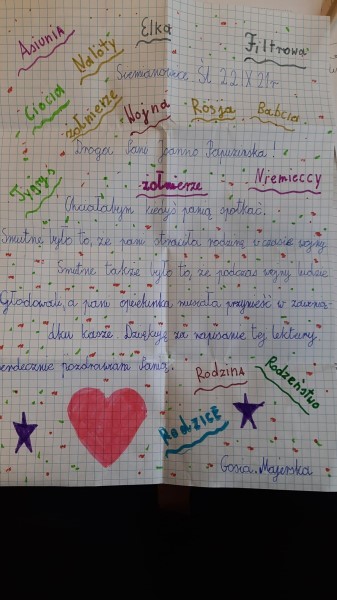 Asiunia Naloty Elka Filtrowa
Siemianowice Śl. 22 IX 21r.
Ciocia żołnierze Wojna Rosja Babcia
Droga Pani Joanno Papuzińska!
Tygrys żołnierze Niemieccy
Chciałabym kiedyś panią spotkać.
Smutne było to, że pani straciła rodzinę w czasie wojny.
Smutne także było to, że podczas wojny ludzie
Głodowali, a pani opiekunka musiała przynieść w zawiniąt-
ku kaszę. Dziękuję za napisanie tej lektury.
Serdecznie pozdrawiam Panią.
Rodzina Rodzeństwo
RODZICE
Gosia Majerska